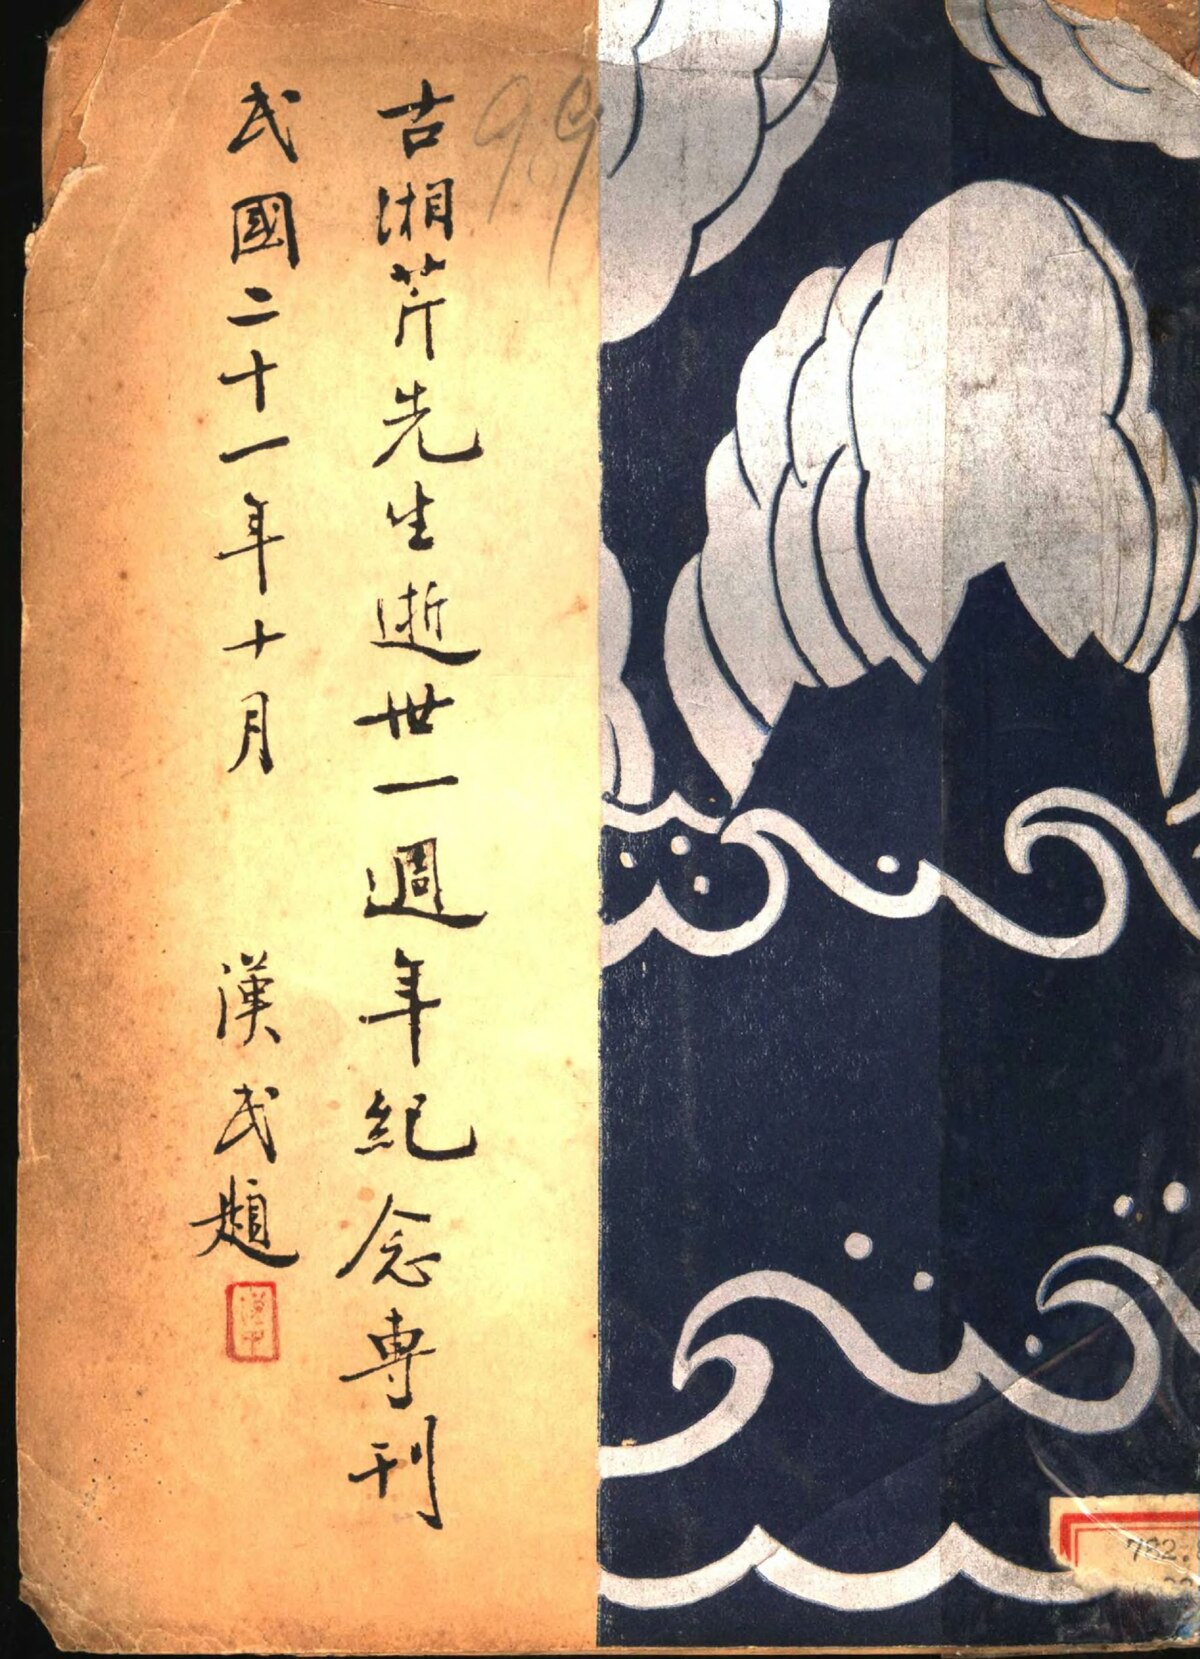 古湘芹先生逝世一週年紀念專刊
民國二十一年十月 漢民題
99
782.